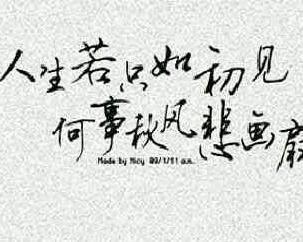 人生若只如初见
何事秋风悲画扇
Made by Nicy 09/1/11 a.m.